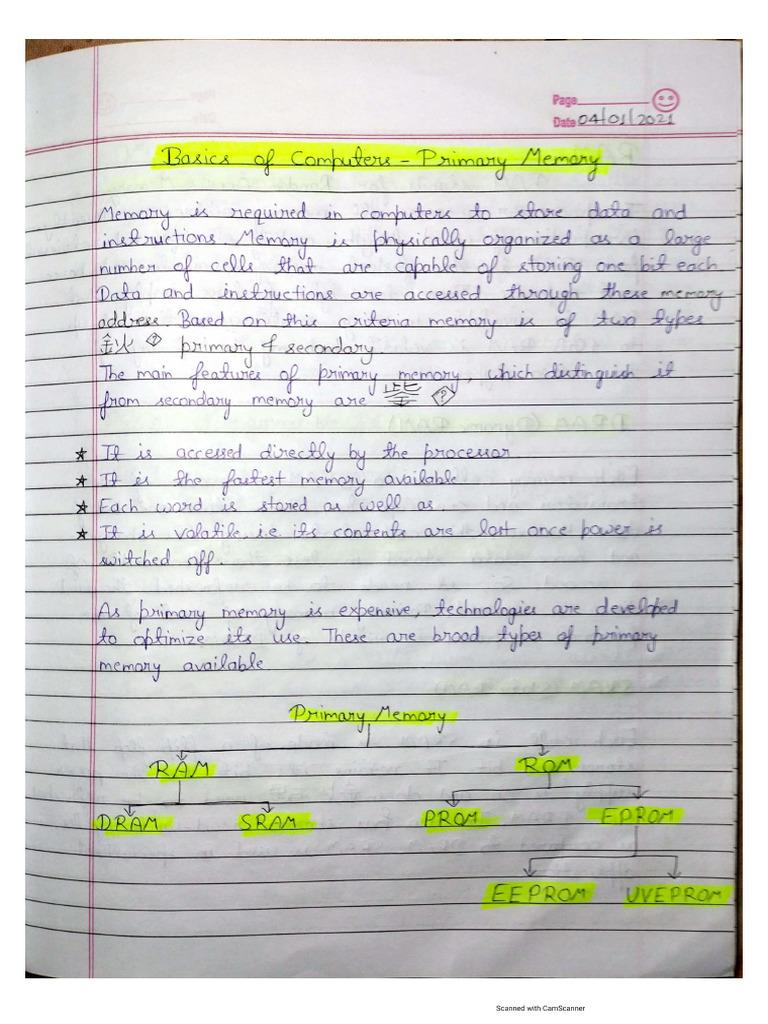 Page
Date 04/01/2021
Basics of Computers - Primary Memory
Memory is required in computers to store data and
instructions. Memory is physically organized as a large
number of cells that are capable of storing one bit each.
Data and instructions are accessed through these memory
address. Based on this criteria memory is of two types
primary & secondary.
The main features of primary memory, which distinguish it
from secondary memory are
☆ It is accessed directly by the processor
☆ It is the fastest memory available
☆ Each word is stored as well as.
☆ It is volatile, i.e. its contents are lost once power is
switched off.
As primary memory is expensive, technologies are developed
to optimize its use. These are broad types of primary
memory available
Primary Memory
RAM ROM
DRAM SRAM PROM EPROM
EEPROM UVEPROM
Scanned with CamScanner